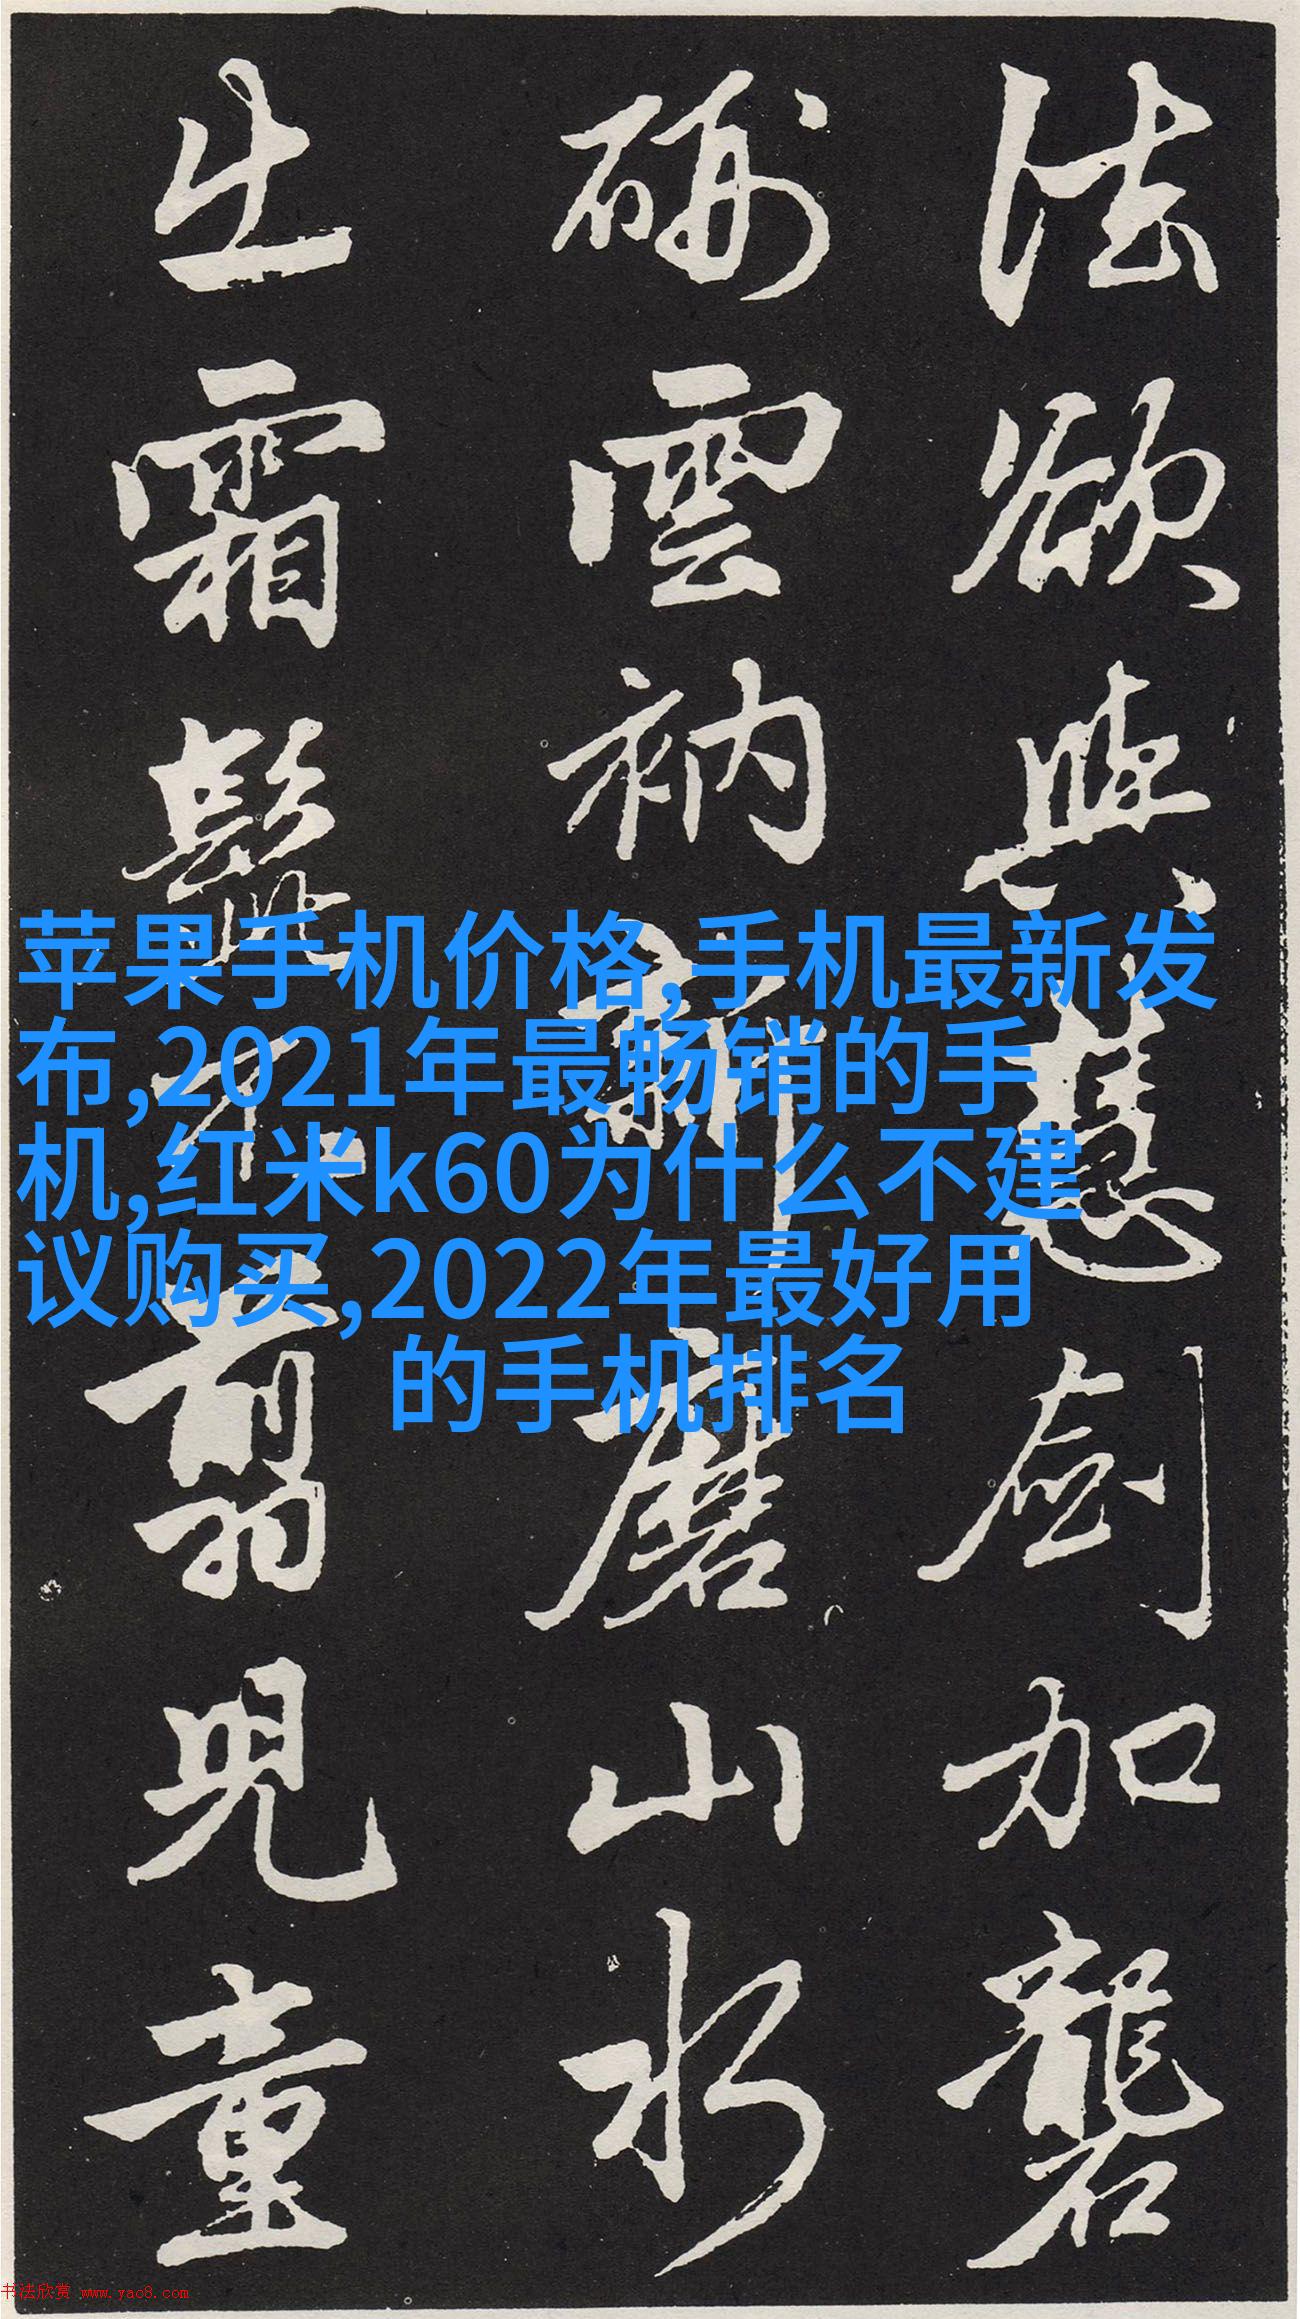 法欲與慧劍加礱
硎雲衲新磨山水
出霜髭不翦兒童
苹果手机价格,手机最新发
布,2021年最畅销的手
机,红米k60为什么不建
议购买,2022年最好用
的手机排名
书法欣赏 www.yac8.com